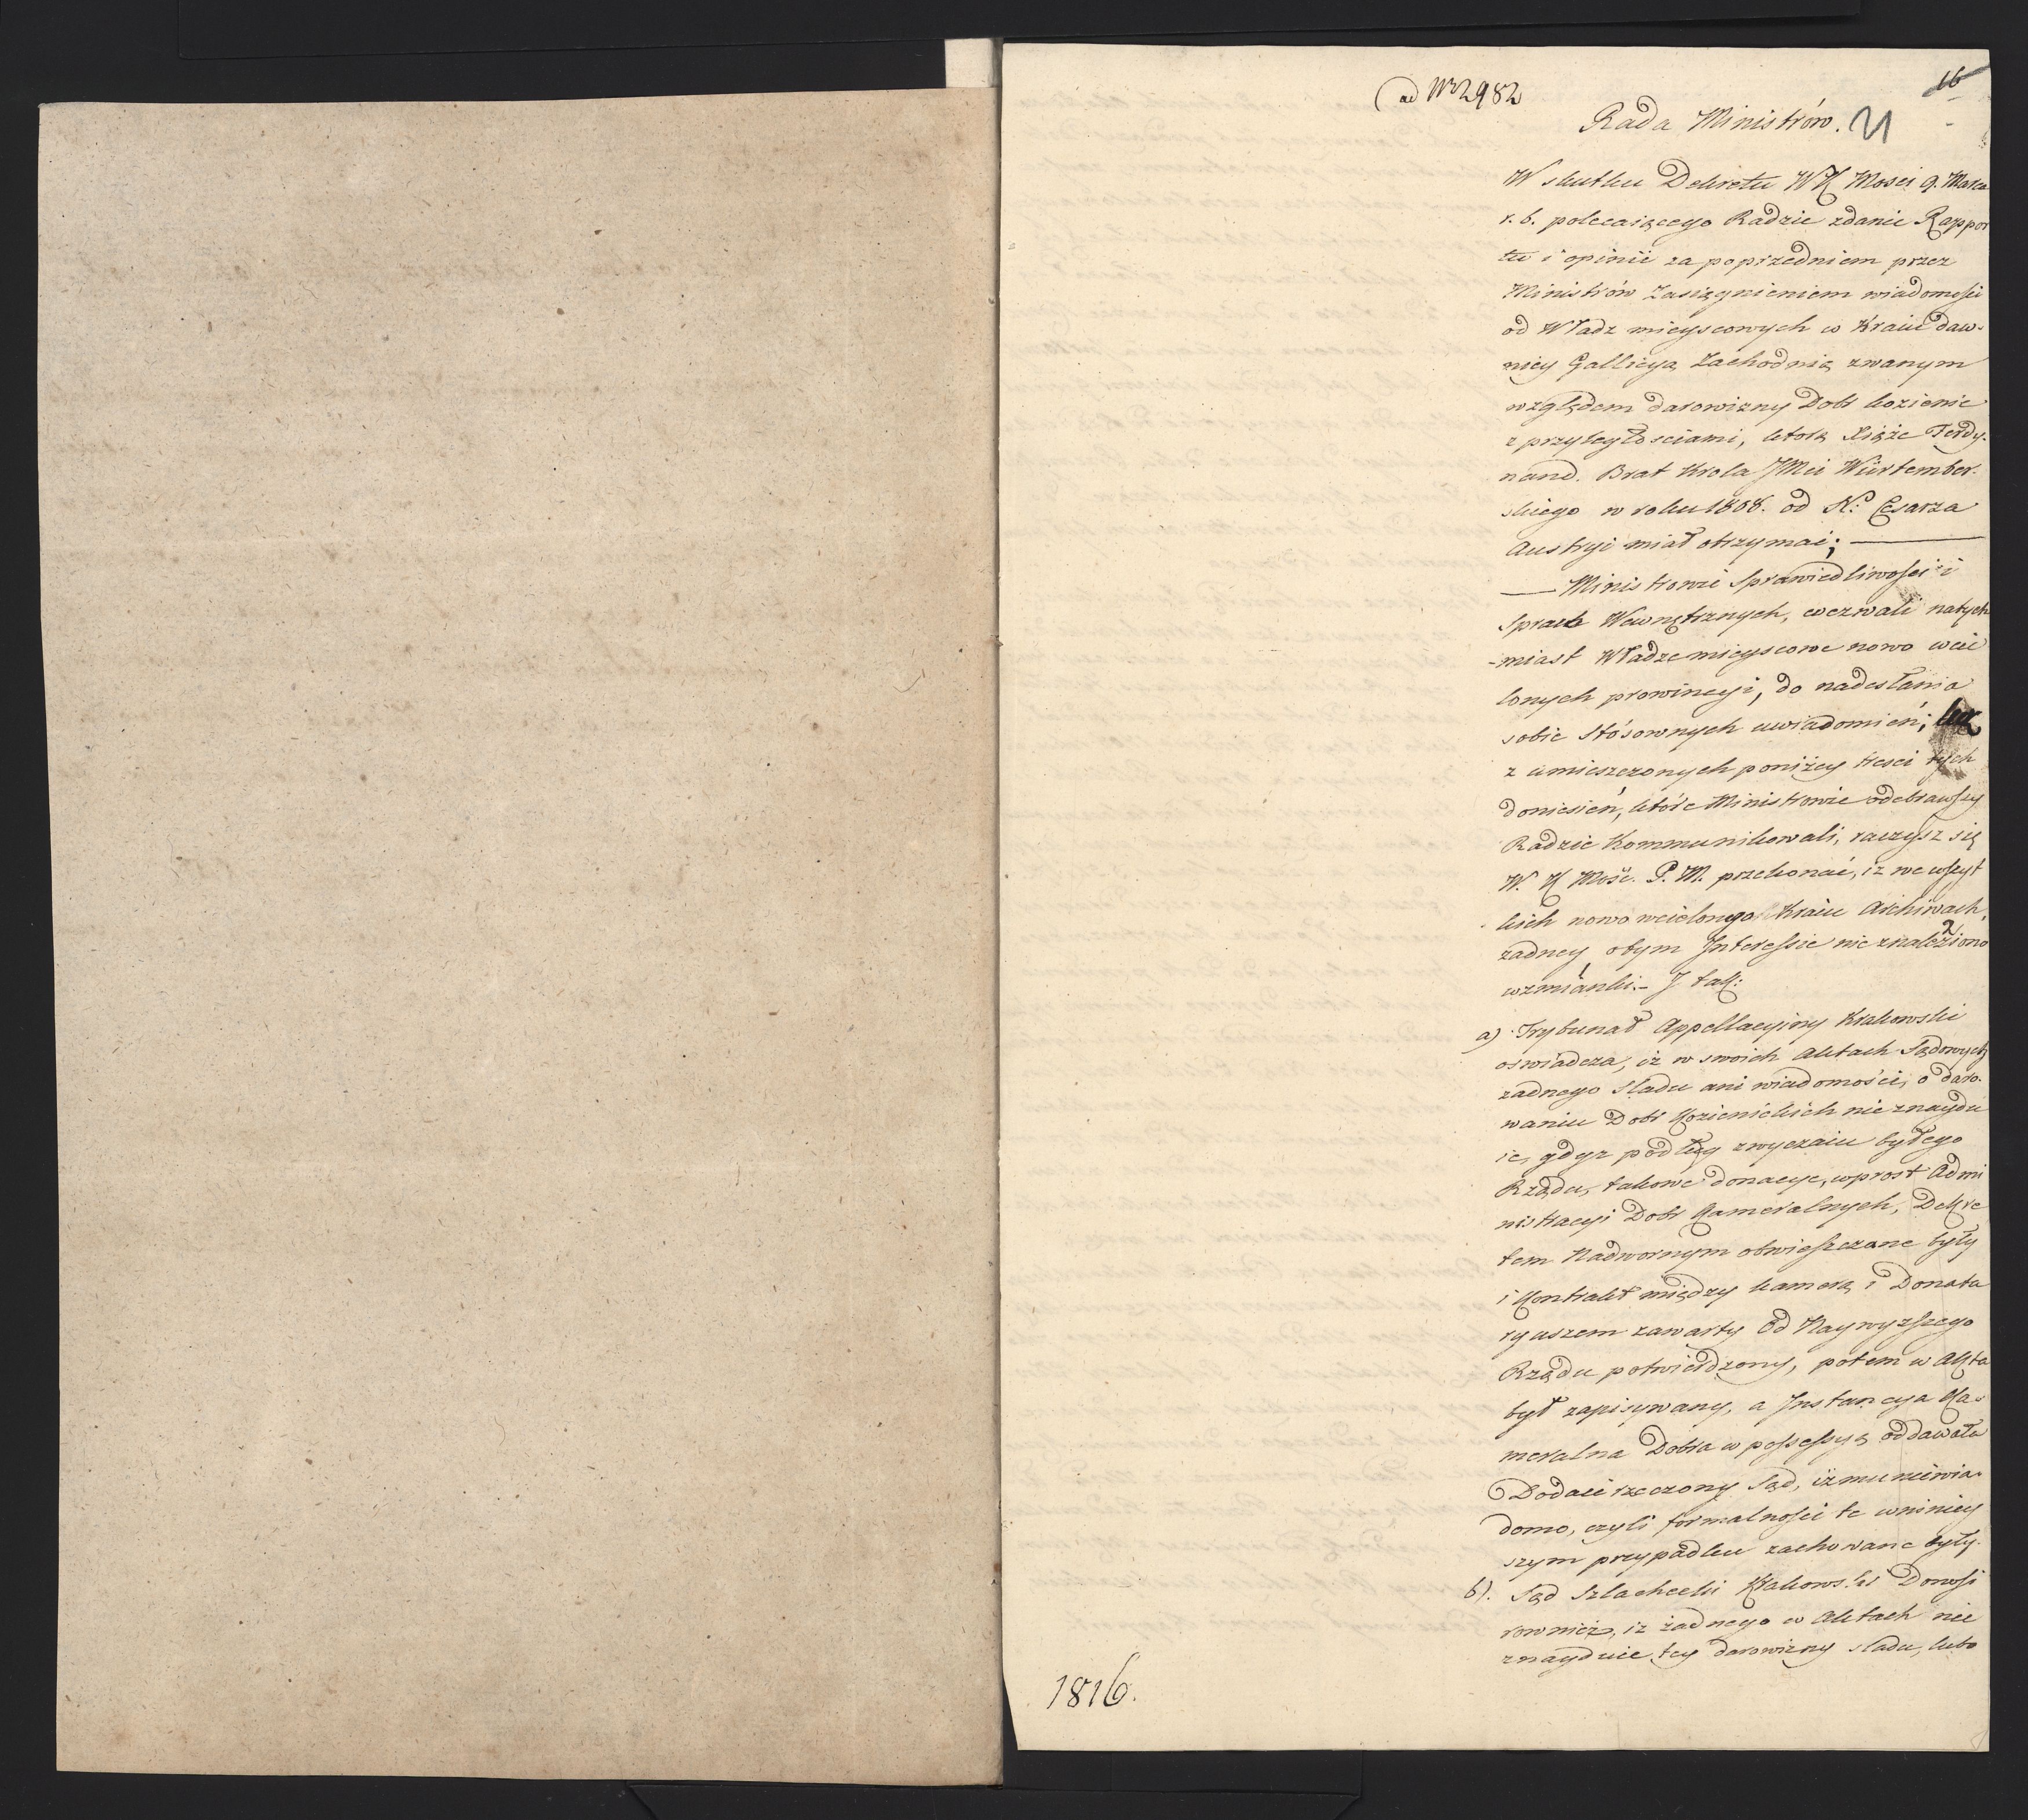 ad Nr 2982
16
Rada Ministrów. 21
W skutku Dekretu WK Mosci 9. Marca
r. b. polecaiącego Radzie zdanie Rappor
tu i opinii za poprzedniem przez
Ministrów Zasiągnieniem wiadomości
od Władz mieyscowych w Kraiu daw-
niey Gallicyą Zachodnią zwanym
względem darowizny Dobr kozienic
z przyległosciami, którą Xiąże Ferdy-
nand. Brat Krola JMci Würtember-
skiego w roku 1808. od N: Cesarza
Austryi miał otrzymać;
Ministrowie Sprawiedliwości i
Spraw Wewnętrznych, wezwali natych
-miast Władze mieyscowe nowo wcie
lonych prowincyi, do nadesłania
sobie stósownych uwiadomień;
z umieszczonych poniżey tresci tych
doniesień, które Ministrowie odebrawszy
Radzie Kommunikowali, raczysz się
W. K Mość. P. M. przekonać, iż we wszyst
kich nowo wcielongo Kraiu Archiwach,
żadney otym Interessie nie znaleziono
wzmianki.- J tak:
a) Trybunał Appellacyiny Krakowski
oswiadcza, iż w swoich Aktach Sądowych
żadnego sladu ani wiadomości, o daro-
waniu Dobr Kozienickich nie znaydu
ie, gdyż podług zwyczaiu byłego
Rządu, takowe donacye, wprost Admi
nistracyi Dobr Kameralnych, Dekre
tem Nadwornym obwieszczane były
i Kontrakt między kamerą i Donata
ryuszem zawarty od Naywyższego
Rządu potwierdzony, potem w Akta
był zapisywany, a Instancya Ka-
meralna Dobra w possessyą oddawała
Dodaie rzeczony Sąd, iż mu niewia-
domo, czyli formalności te wniniey
szym przypadku zachowane były.
b). Sąd Szlachecki Krakowski Donosi
rownież, iż żadnego w Aktach nie
znayduie tey darowizny sladu, lubo
1816.